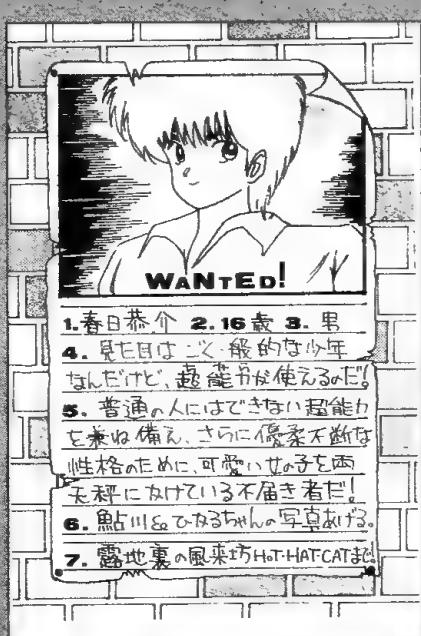 WANTED!
1.春日恭介 2.16歳 3.男
4.見た目はごく一般的な少年
なんだけど、超能力が使えるのだ!
5.普通の人にはできない超能力
を兼ね備え、さらに優柔不断な
性格のために、可愛い女の子を両
天秤にかけている不届き者だ!
6.鮎川&ひかるちゃんの写真あげる。
7.露地裏の風来坊HOT・HAT・CATまで。